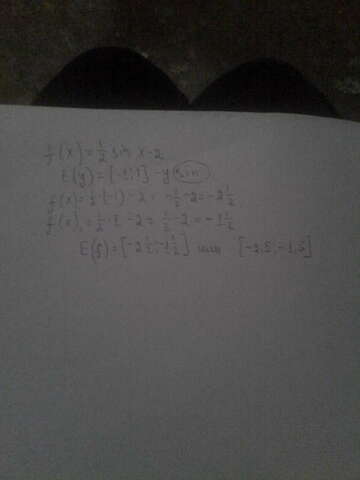 f(x) = ½ sin x - 2
E(y) = [-1; 1] - y sin x
f(x) = ½ · (-1) - 2 = -½ - 2 = -2½
f(x) = ½ · 1 - 2 = ½ - 2 = -1½
E(f) = [-2½; -1½] или [-2,5; -1,5]